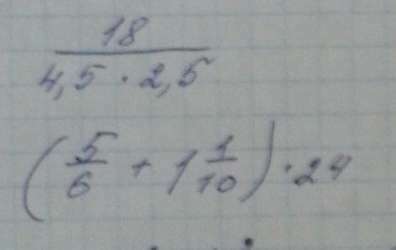 18
4,5 · 2,5
(5/6 + 1 1/10) · 24